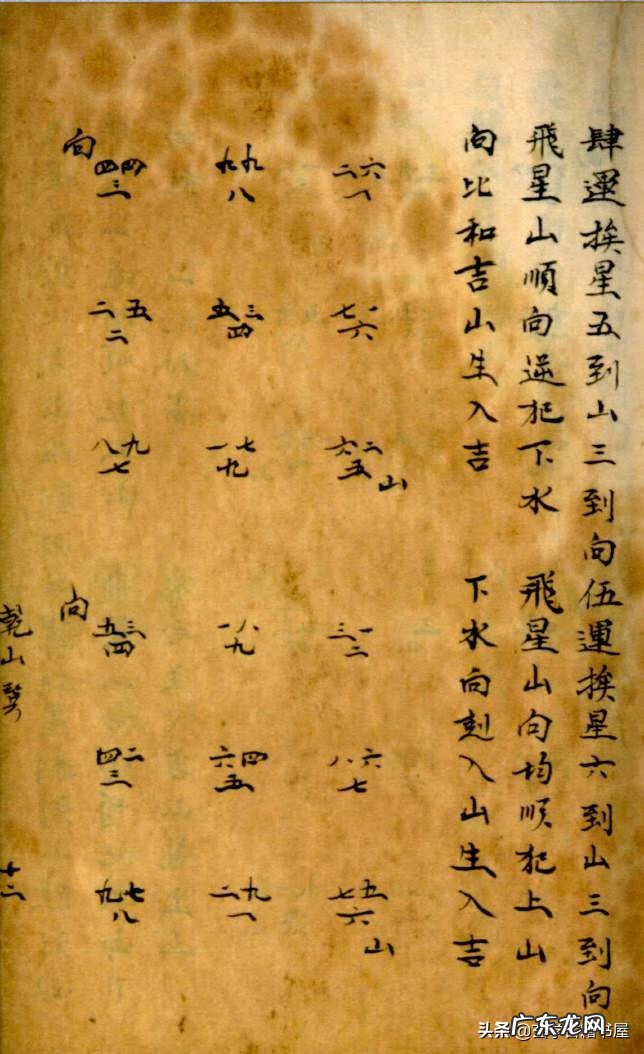 肆運挨星五到山三到向
飛星山順向逆犯下水
向比和吉山生入吉
向
四四 九九 二六
三 八 一
二五 五三 七一
二 四 六
八九 一七 六二
七 九 五
山
伍運挨星六到山三到向
飛星山向均順犯上山
下水向剋入山生入吉
向
五三 一八 三一
四 九 二
四二 六四 八六
三 五 七
九七 二九 七五
八 一 六
山
乾山巽
十二
头条
书屋
广东龙网